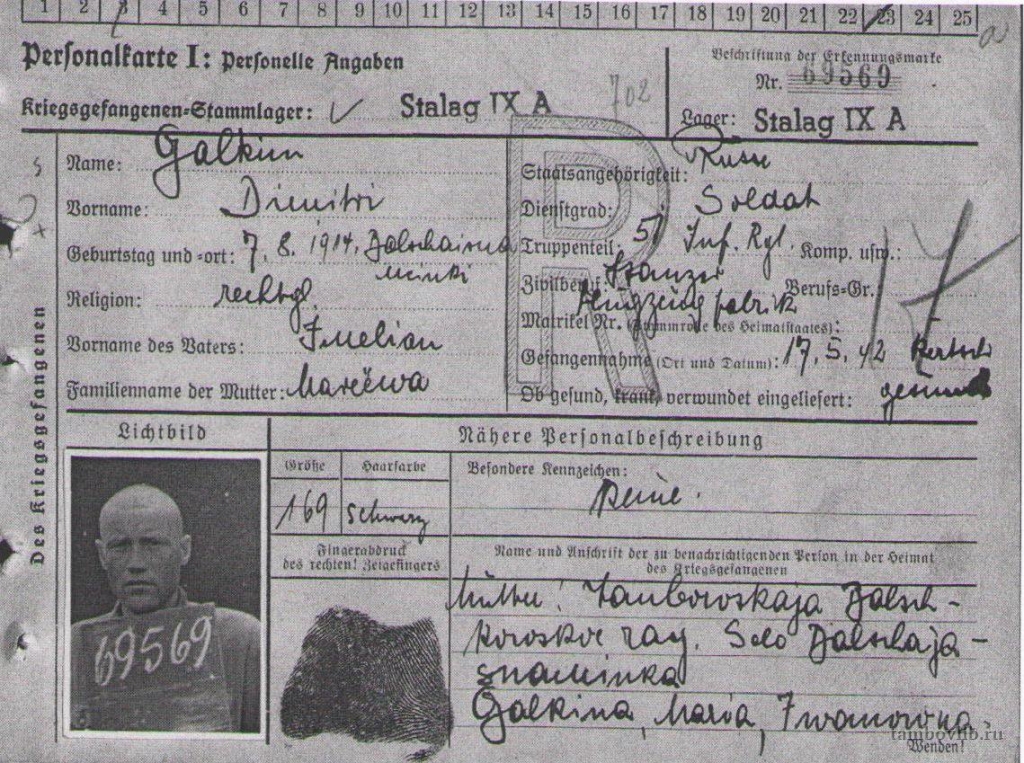 1 2 3 4 5 6 7 8 9 10 11 12 13 14 15 16 17 18 19 20 21 22 23 24 25
Personalkarte I: Personelle Angaben
Kriegsgefangenen-Stammlager: Stalag IX A
702
Beschriftung der Erkennungsmarke
Nr. 69569
Lager: Stalag IX A
Des Kriegsgefangenen
Name: Galkin
Vorname: Dimitri
Geburtstag und -ort: 7. 8. 1914.
Religion: rechtgl.
Vorname des Vaters: Imelian
Familienname der Mutter:
R
Staatsangehörigkeit: Russe
Dienstgrad: Soldat
Truppenteil: 51 Inf. Rgt. Komp. usw.:
Zivilberuf: Stanzer Berufs-Gr.
Flugzeugfabrik
Matrikel Nr. (Stammrolle des Heimatstaates):
Gefangennahme (Ort und Datum): 17. 5. 42 Kertsch
Ob gesund, krank, verwundet eingeliefert: gesund
Lichtbild
69569
Nähere Personalbeschreibung
Größe
169
Haarfarbe
schwarz
Besondere Kennzeichen:
Keine.
Fingerabdruck
des rechten! Zeigefingers
Name und Anschrift der zu benachrichtigenden Person in der Heimat
des Kriegsgefangenen
Mutter: Tambowskaja Balsch-
ray. Selo Balschaja-
snaminka
Galkina, Maria, Iwanowna.
tambovlib.ru
Wenden!